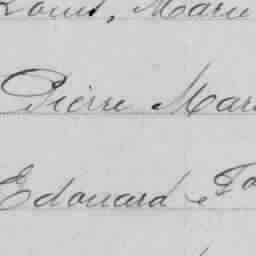 Louis, Marie
Pierre Mar
Edouard, Jo